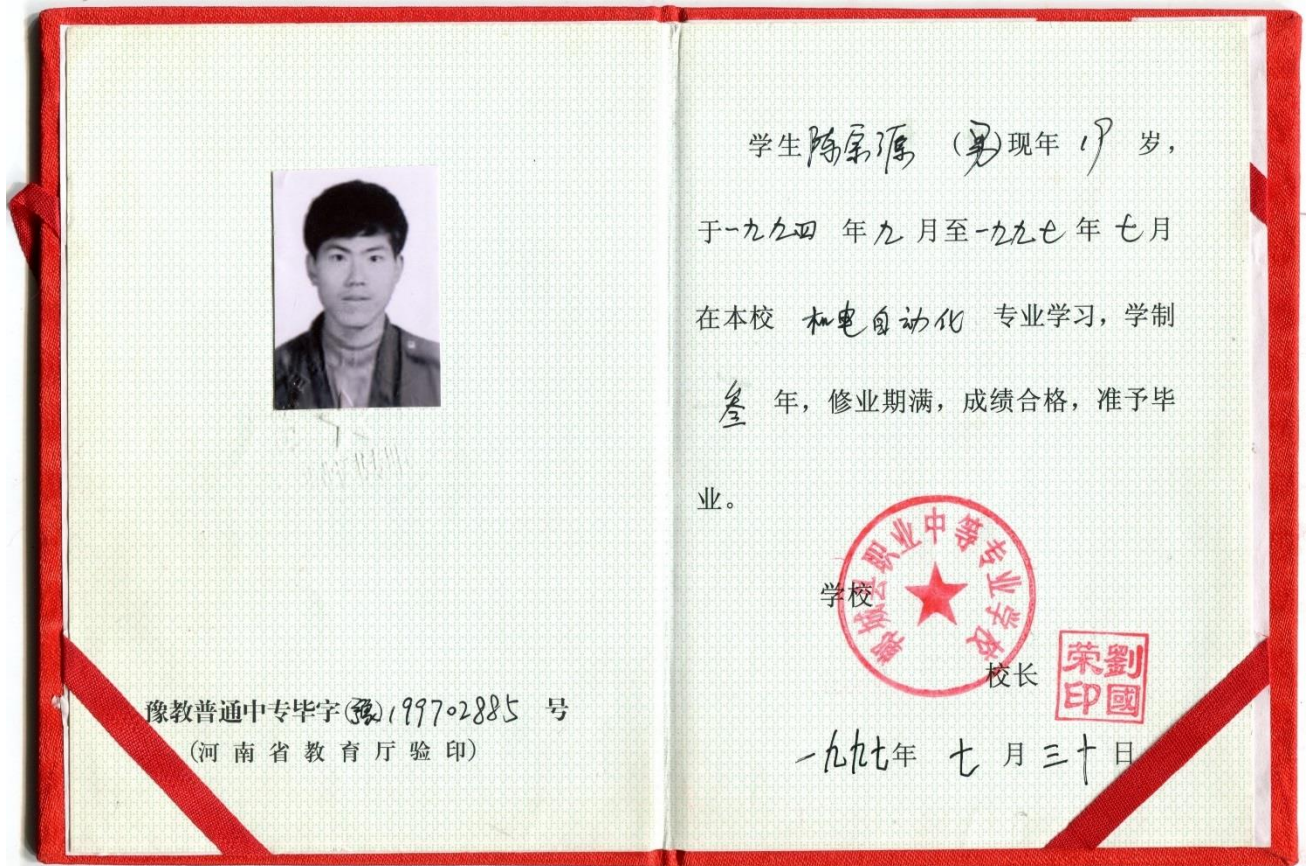 豫教普通中专毕字(豫)199702885 号
(河南省教育厅验印)
学生陈宗源 (男)现年 19 岁,
于一九九四 年九月至一九九七年七月
在本校 机电自动化 专业学习,学制
叁 年,修业期满,成绩合格,准予毕
业。
郸城县职业中等专业学校
学校
校长
劉國荣印
一九九七年 七 月三十日